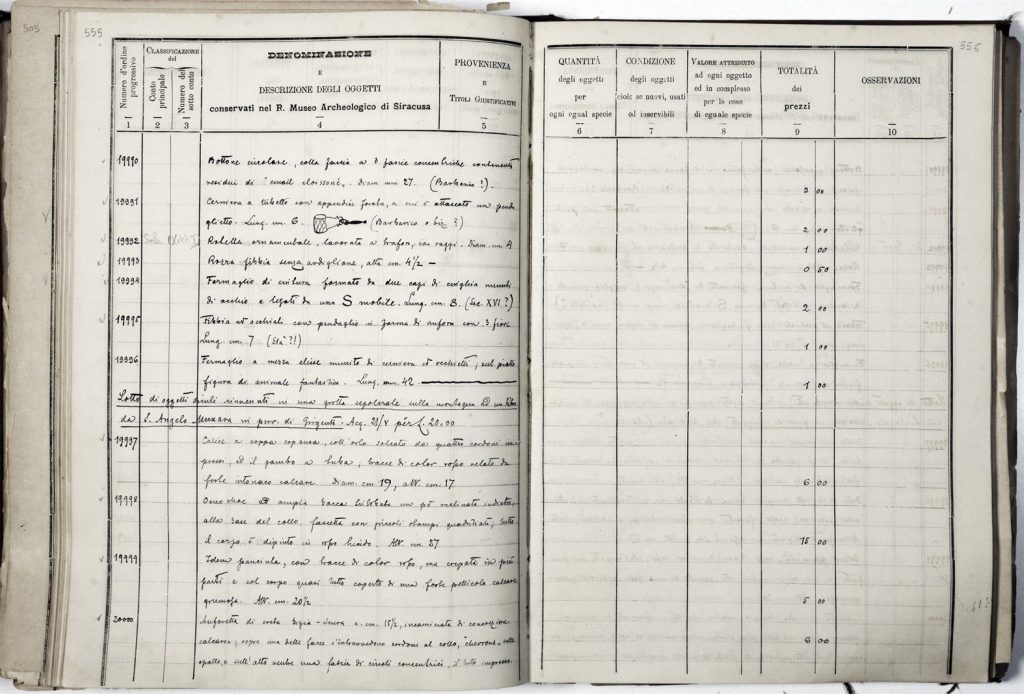 505
555
Numero d'ordine progressivo
CLASSIFICAZIONE del
Conto principale
Numero del sotto conto
DENOMINAZIONE
E
DESCRIZIONE DEGLI OGGETTI
conservati nel R. Museo Archeologico di Siracusa
PROVENIENZA
E
TITOLI GIUSTIFICATIVI
1 2 3 4 5
19990 Bottone circolare, colla faccia a 3 fascie concentriche contenenti
residui di "email cloissoné". Diam. mm. 27. (Barbarico?).
19991 Cerniera a tubetto con appendice forata, a cui è attaccato un penda
glietto. Lung. cm. 6. (Barbarico o biz.?)
19992 Rotella ornamentale, lavorata a traforo, con raggi. Diam. cm. 4
19993 Rozza fibbia senza ardiglione, alta cm. 4 1/2 —
19994 Fermaglio di cintura formato da due capi di cinghia muniti
di occhio, e legati da una S mobile. Lung. cm. 8. (Sec. XVI?)
19995 Fibbia ad occhiali con pendaglio in forma di anfora con 3 fiori
Lung. cm. 7 (Età?!)
19996 Fermaglio a mezza elisse munito di cerniera ed occhietti; sul piatto
figura di animale fantastico. Lung. mm. 42.
Lotto di oggetti siculi rinvenuti in una grotta sepolcrale sulla montagna
da S. Angelo Muxaro in prov. di Girgenti. Acq. 21/V per £. 20.00
19997 Calice a coppa cogaura, coll'orlo calcato da quattro cordoni im
pressi, ed il gambo a tuba; tracce di color rosso velato da
forte intonaco calcare. Diam. cm. 19, alt. cm. 17
19998 Oenochoe ad ampia bocca trilobata un pò reclinata indietro,
alla base del collo fascetta con piccoli stampi quadrilateri, tutto
il corpo è dipinto in rosso lucido. Alt. cm. 27
19999 Idem panciuta, con tracce di color rosso, ma crepata in più
parti e col corpo quasi tutto coperto di una forte pellicola calcare
grumosa. Alt. cm. 20 1/2
20000 Anforetta di creta bigia-scura a. cm. 15 1/2, incamiciata di concrezione
calcarea; sopra una delle facce s'intravvedono cordoni al collo, "chevrons" sulle
spalle, e sull'alto ventre una fascia di circoli concentrici, il tutto impresso.
556
QUANTITÀ
degli oggetti
per
ogni egual specie
CONDIZIONE
degli oggetti
cioè: se nuovi, usati
od inservibili
VALORE ATTRIBUITO
ad ogni oggetto
ed in complesso
per le cose
di eguale specie
TOTALITÀ
dei
prezzi
OSSERVAZIONI
6 7 8 9 10
2 00
2 00
1 00
0 50
2 00
1 00
1 00
6 00
15 00
5 00
6 00